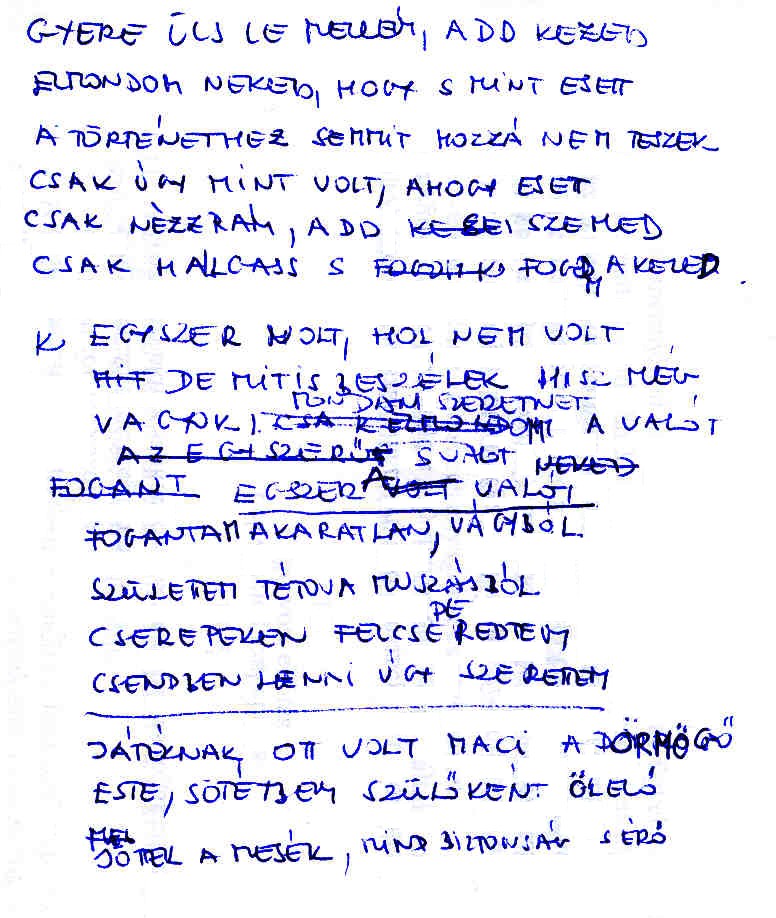 GYERE ÜLJ LE MELLÉM, ADD KEZED
ELMONDOM NEKED, HOGY S MINT ESETT
A TÖRTÉNETHEZ SEMMIT HOZZÁ NEM TESZEK
CSAK ÚGY MINT VOLT, AHOGY ESET
CSAK NÉZZ RÁM, ADD SZEMED
CSAK HALGASS S FOGD M A KEZED
K EGYSZER VOLT, HOL NEM VOLT
MIT DE MIT IS BESZÉLEK HISZ MÉG
MONDANI SZERETNÉT
VAGYOK! CSAK ELMONDOM A VALÓT
AZ EGYSZERŰ S VÁGY NEKED
FOGANT EGSZER A VOLT VALÓ
FOGANTAM AKARATLAN, VÁGYBÓL
SZÜLETTEM TÉTOVA MUSZÁJBÓL
PE
CSEREPEKEN FELCSEREDTEM
CSENDBEN LENNI ÚGY SZERETTEM
JÁTÉKNAK OTT VOLT MACI A DÖRMÖGŐ
ESTE, SÖTÉTBEN SZÜLŐKÉNT ÖLELŐ
JÖTTEK A MESÉK, MIND BIZTONSÁG